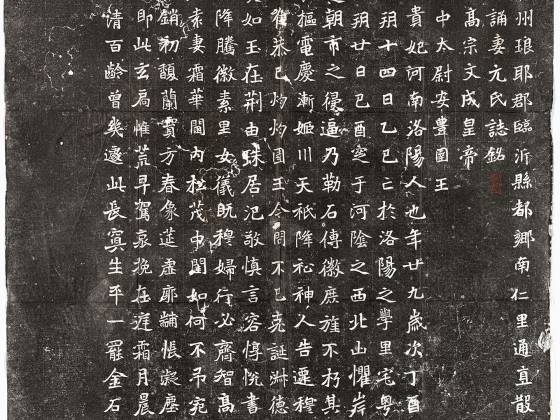 州琅耶郡臨沂縣都鄉南仁里通直散
誦妻元氏誌銘
高宗文成皇帝
中太尉安豐圉王
貴妃河南洛陽人也年廿九歲次丁酉
朔十四日乙巳亡於洛陽之學里宅粵
朔廿日己酉窆於河陰之西北山懼岸
之朝市之侵逼乃勒石傳徽庶旌不朽其
樞電慶漸姬川天祇降祉神人告遷穆
恭己灼灼圉王令問不已克誕淑德
如玉在荆由蛛居氾敬慎言容惇悅書
降騰徽素里女儀既穆婦行必齊智高
素妻霜華閫內松茂中閨如何不弔宛
銷初馥蘭實方春象筵虛廓黼帳凝塵
即此玄扃惟荒早駕哀挽在遲霜月晨
清百齡曾幾遽此長冥生平一罷金石